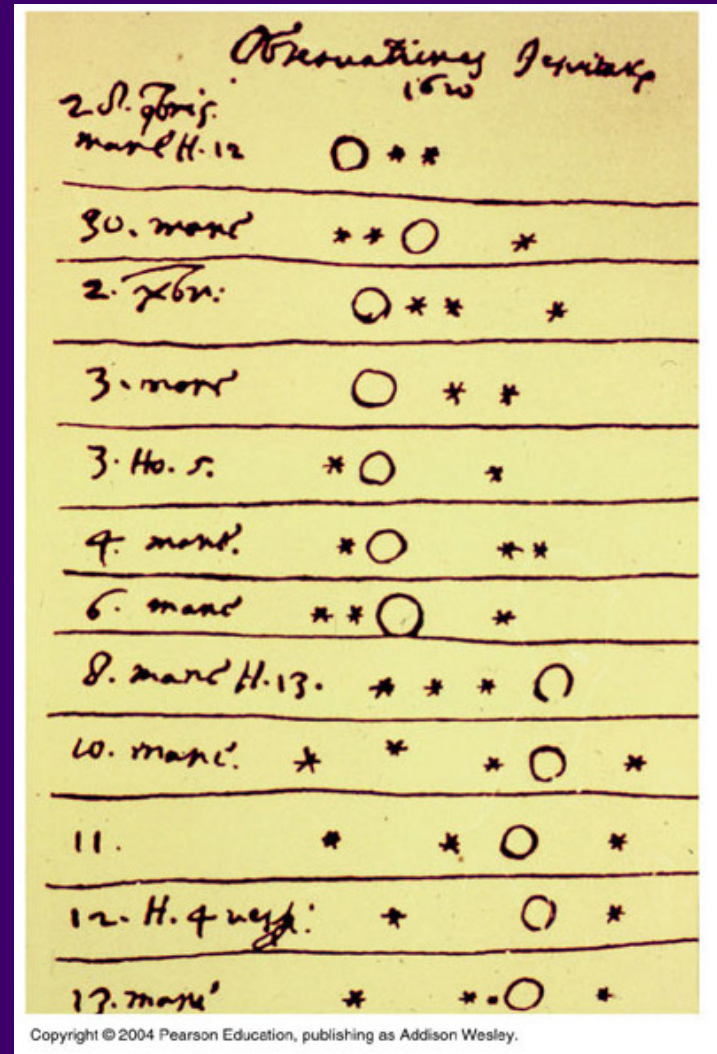 Observationes Jesuitarum
1610
2. S. 9bris.
mane H. 12
30. mane
2. Xbr:
3. mane
3. Ho. 5.
4. mane.
6. mane
8. mane H. 13.
10. mane.
11.
12. H. 4 vesp:
13. mane
Copyright © 2004 Pearson Education, publishing as Addison Wesley.